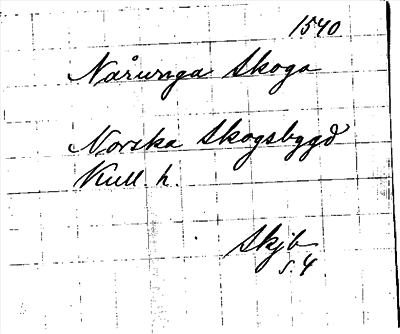 1540
Nårunga Skoga
Norska Skogsbygd
Kull. h.
Skjb
s. 4